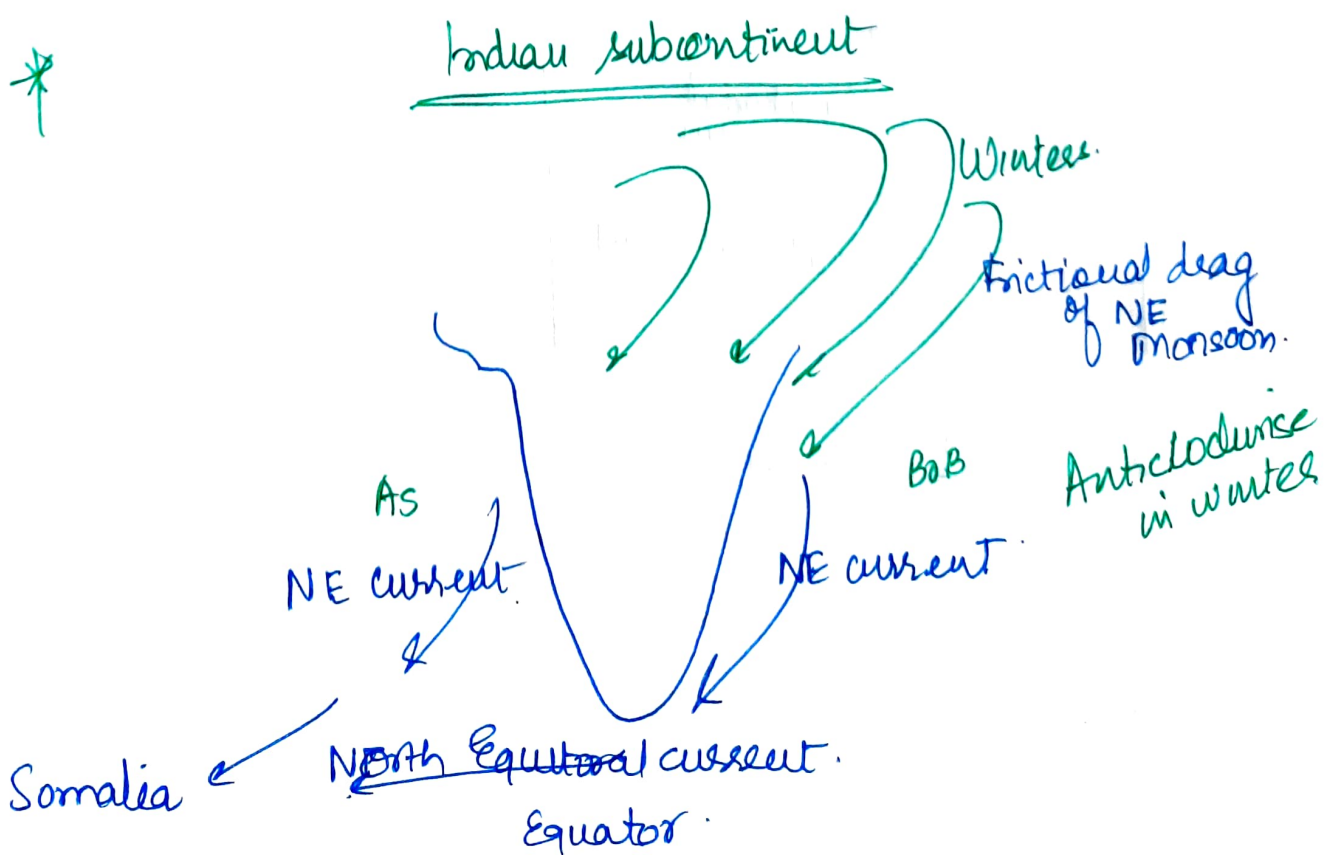 Indian subcontinent
Winters.
Frictional drag
of NE
Monsoon.
AS
BoB
Anticlockwise
in winter
NE current.
NE current.
North Equitoral current.
Somalia
Equator.